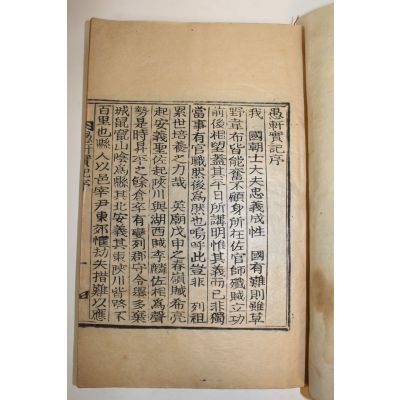 愚軒實記序
我 國朝士大夫忠義成性 國有難則雖草
野韋布皆能奮不顧身所在佐官師殲賊立功
前後相望蓋其平日所講明惟其義而已非獨
當事有官職然後爲然也嗚呼此豈非 列祖
累世培養之力哉 英廟戊申之春嶺賊希亮
起安義聖佐起陜川與湖西賊李麟佐相爲聲
勢是時昇平之餘倉卒有變列郡守令還多棄
城鼠竄山陰爲縣其北安義其東陜川皆路不
百里也縣人以邑宰尹東郊惟劫失措難以應
愚軒實記序
一